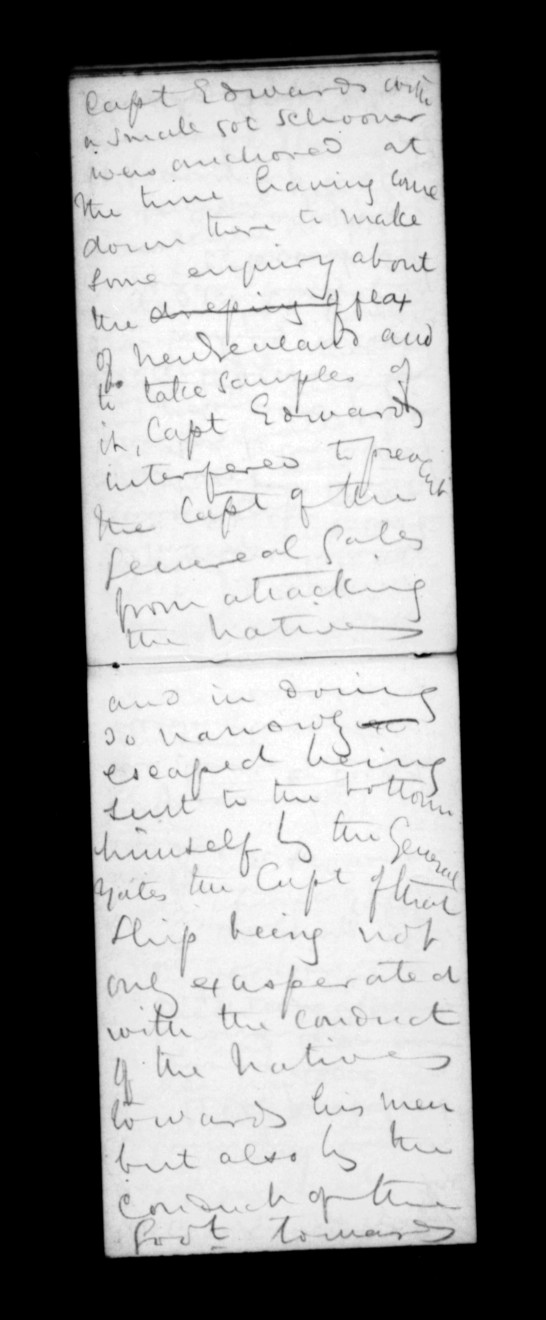 Capt Edwards with
a small sot schooner
were anchored at
the time having come
down there to make
some enquiry about
the dressing of flax
of New Zealand and
to take samples of
it, Capt Edwards
interfered to prevent
the Capt of the
General Gates
from attacking
the Natives
and in doing
so narrowly
escaped being
sent to the bottom
himself by the General
Gates the Capt of that
Ship being not
only exasperated
with the conduct
of the Natives
towards his men
but also by the
conduct of the
Govt towards